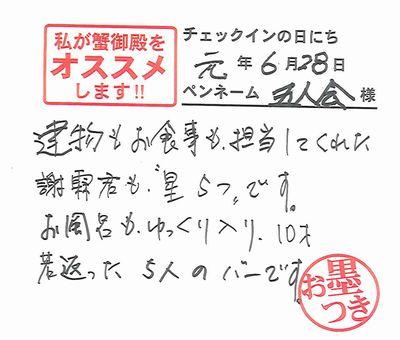 私が蟹御殿を
オススメ
します!!
チェックインの日にち
元年6月28日
ペンネーム 五人会 様
建物もお食事も、担当してくれた
謝 店も、"星5つ"です。
お風呂も、ゆっくり入り、10才
若返った 5人のバーです。
お墨
つき